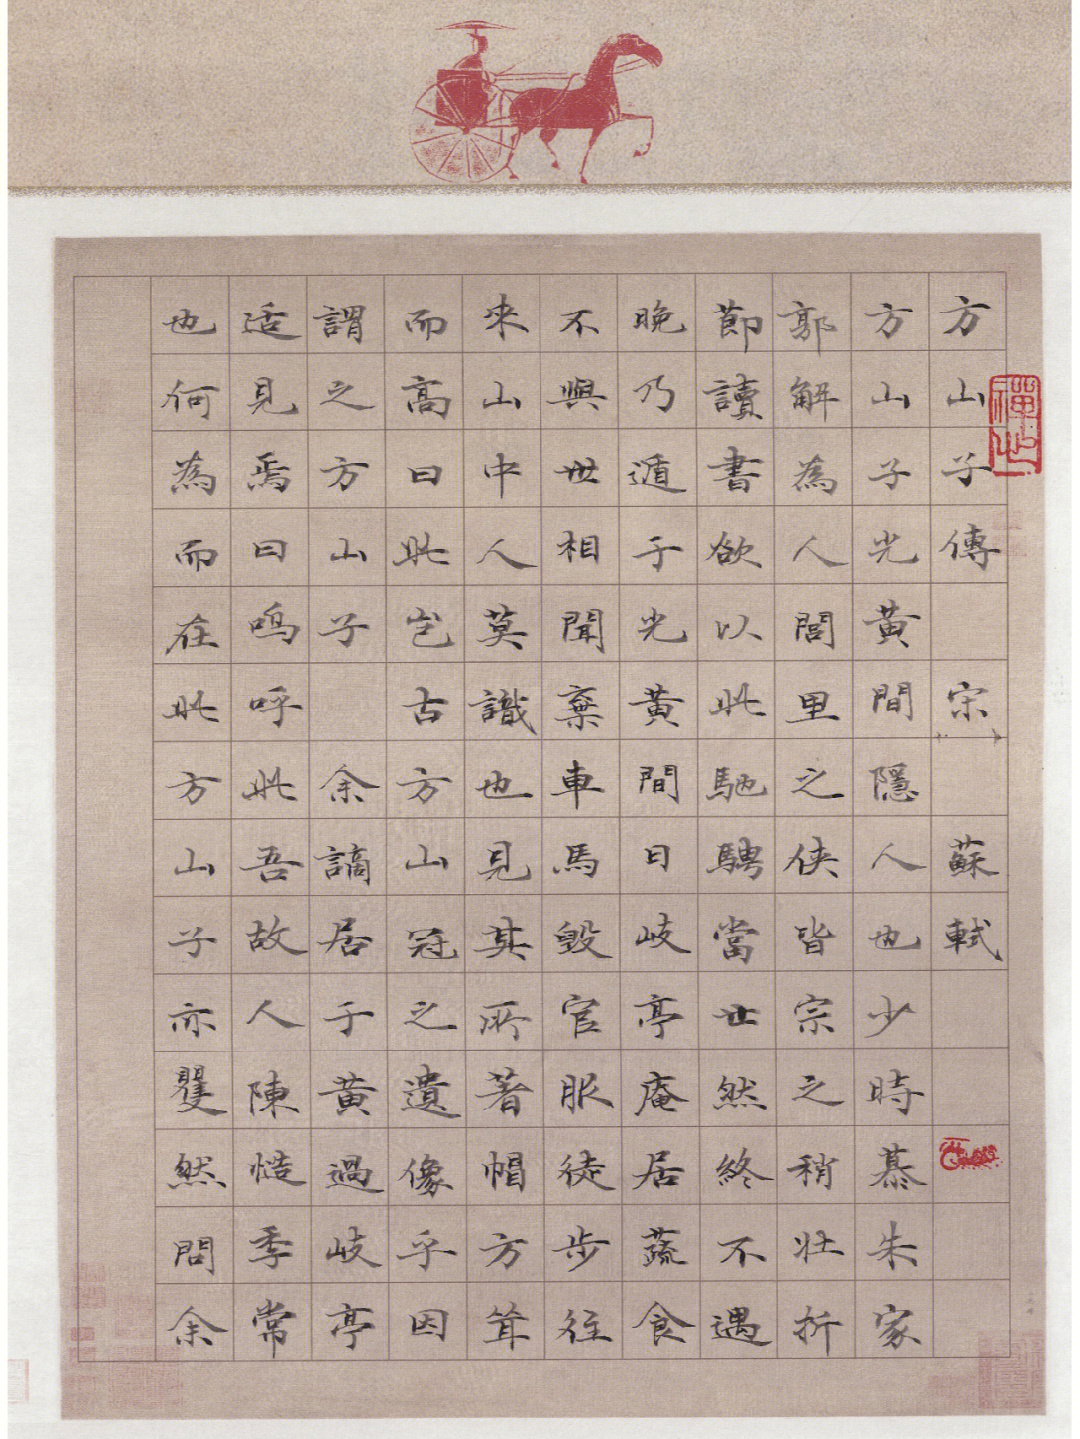 方山子傳 宋 蘇軾
方山子光黃間隱人也少時慕朱家
郭解為人閭里之俠皆宗之稍壯折
節讀書欲以此馳騁當世然終不遇
晚乃遁于光黃間曰岐亭庵居蔬食
不與世相聞棄車馬毀官服徒步往
來山中人莫識也見其所著帽方聳
而高曰此豈古方山冠之遺像乎因
謂之方山子 余謫居于黃過岐亭
適見焉曰嗚呼此吾故人陳慥季常
也何為而在此方山子亦矍然問余